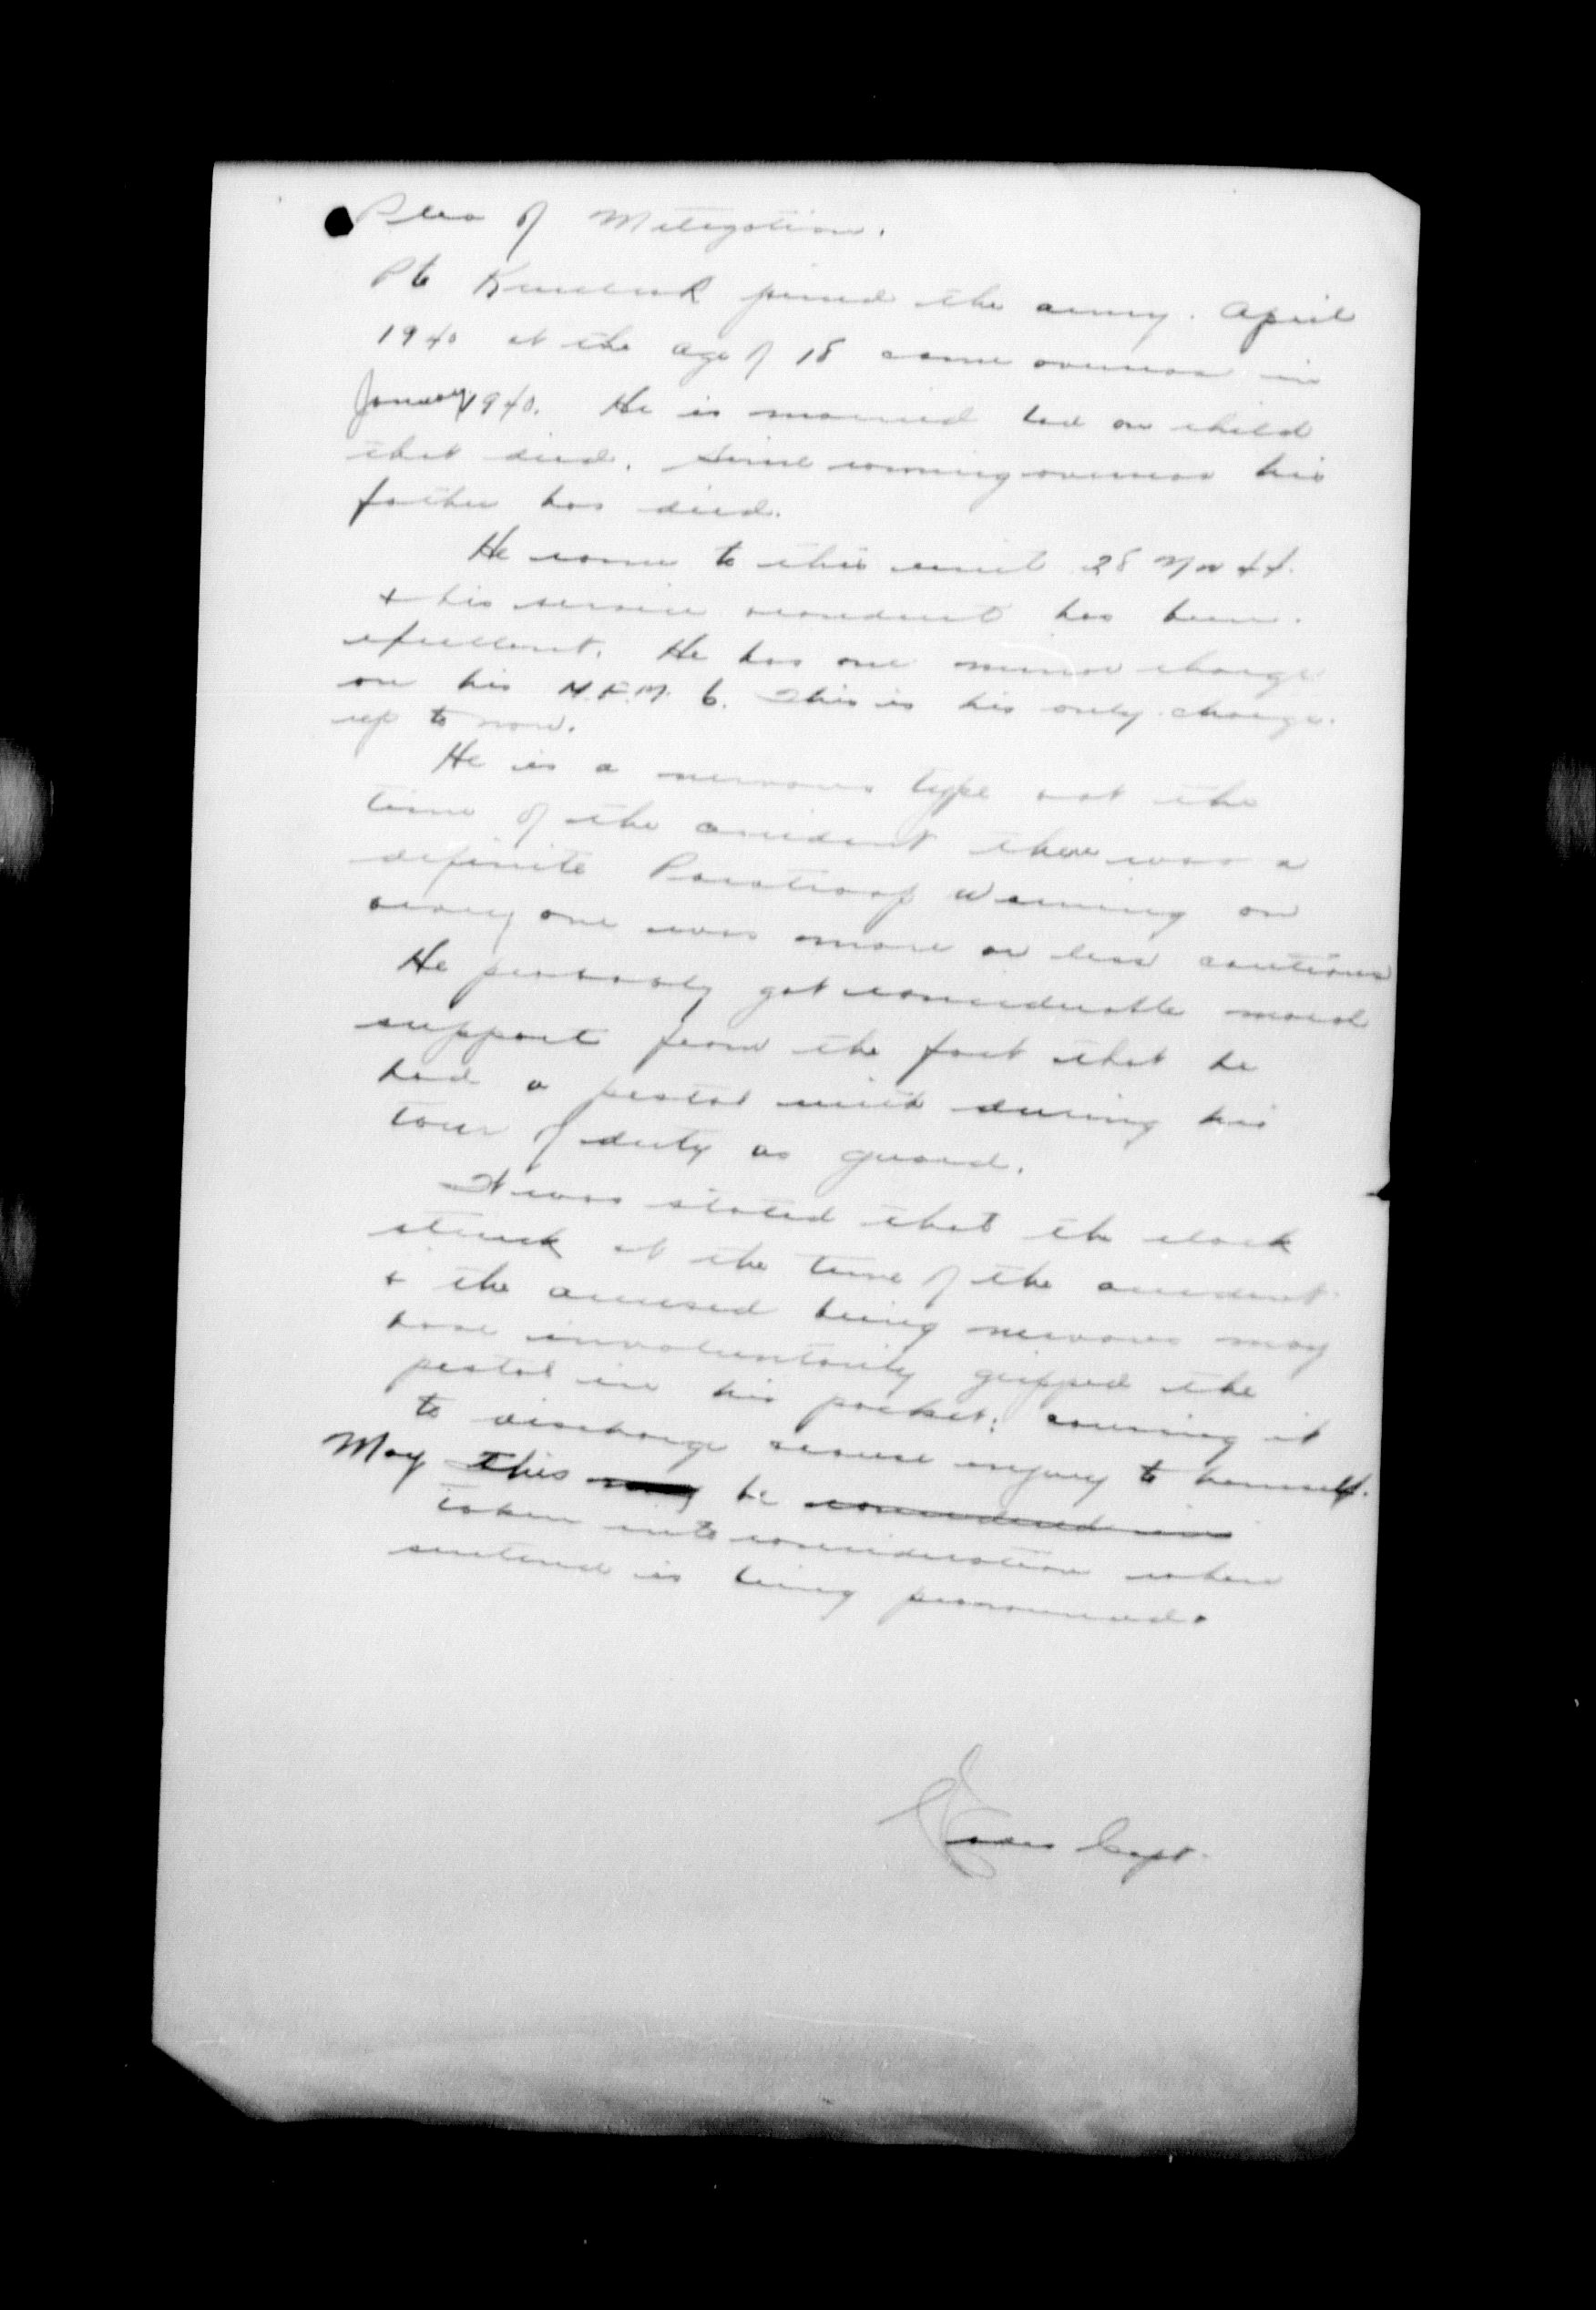 Plea of Mitigation.
Pte joined the army. April
1940 at the age of 18 came overseas in
January 1940. He is married had on child
that died. Since coming overseas his
father has died.
He came to this unit 28 Nov 44.
+ his service conduct has been.
excellent. He has one minor charge
on his M.F.M. 6. This is his only charge.
up to now.
He is a nervous type and at the
time of the accident there was a
definite Paratroop Warning on
every one was more or less cautious
He probably got considerable moral
support from the fact that he
had a pistol with during his
tour of duty as guard.
It was stated that the clock
struck at the time of the accident
+ the accused being nervous may
have involuntarily gripped the
pistol in his pocket; causing it
to discharge cause injury to himself.
May This may be considered in
taken into consideration when
sentence is being pronounced.
Capt.